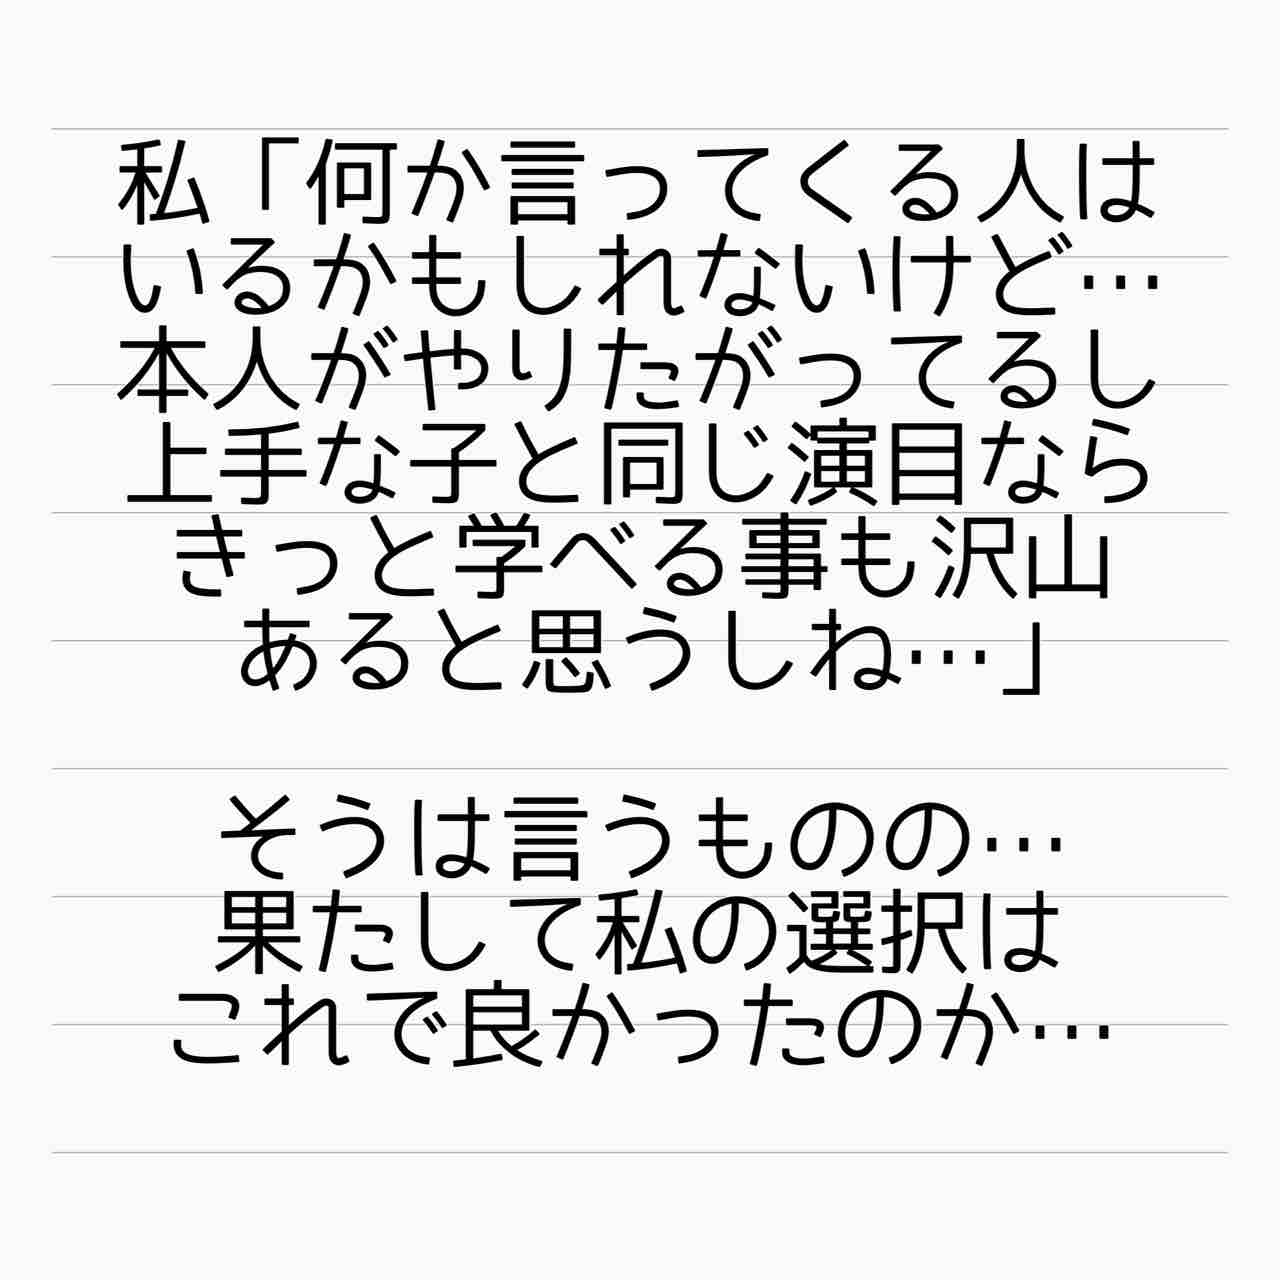 私「何か言ってくる人は
いるかもしれないけど…
本人がやりたがってるし
上手な子と同じ演目なら
きっと学べる事も沢山
あると思うしね…」
そうは言うものの…
果たして私の選択は
これで良かったのか…